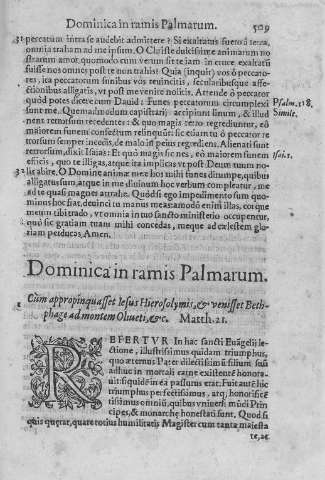 Dominica in ramis Palmarum. 509
31 peccatum intra se audebit admittere? Si exaltatus fuero à terra,
omnia traham ad me ipsum. O Christe dulcissime animarum no
strarum amor, quomodo cum verum sit te iam in cruce exaltatū
fuisse nos omnes post te non trahis? Quia (inquit) vos ô peccato-
res, ita peccatorum funibus vos reuincitis, secularibusque affe-
ctionibus alligatis, vt post me venire nolitis. Attende ô peccator
quòd potes dicere cum Dauid: Funes peccatorum circumplexi Psalm. 118.
sunt me. Quemadmodum capistrarij accipiunt linum, & illud Simile.
nent retrorsum recedentes: & quo magis retro regrediuntur, eò
maiorem funem consectum relinquunt: sic etiam tu ô peccator re
trorsum semper incedis, de malo in peius regrediens. Alienati sunt
retrorsum, dixit Isaias: Et quò magis sic nes, eò maiorem funem Isai. 1.
efficis, quo te alligas, atque ita implicas vt post Deum tuum no-
32 lis abire. O Domine animæ meæ hos mihi funes dirumpe, quibus
alligatus sum, atque in me diuinum hoc verbum compleatur, me
ad te quasi magnes attrahe. Quòd si ego impedimento sum quo-
minus hoc fiat, deuinci tu manus meas: amodò enim illas, cor que
meum tibi trado, vt omnia in tuo sancto ministerio occupentur,
quò sic gratiam tuam mihi concedas, meque ad cælestem glo-
riam perducas, Amen.
Dominica in ramis Palmarum.
1 Cùm appropinquasset Iesus Hierosolymis, & venisset Beth-
phage ad montem Oliueti, &c. Matth. 21.
REFERTVR In hac sancti Euãgelij le-
ctione, illustrissimus quidam triumphus,
quo æternus Pater dilectissimũ filium suũ
adhuc in mortali carne existentẽ honora-
uit siquidẽ in ea passurus erat. Fuit autẽ hic
triumphus perfectissimus, atq; honorificẽ
tissimus omniũ, quibus vniuersi mũdi Prin
cipes, & monarchę honestati sunt. Quod si
quis querat, quare totius humilitatis Magister cum tanta maiesta
te, ac